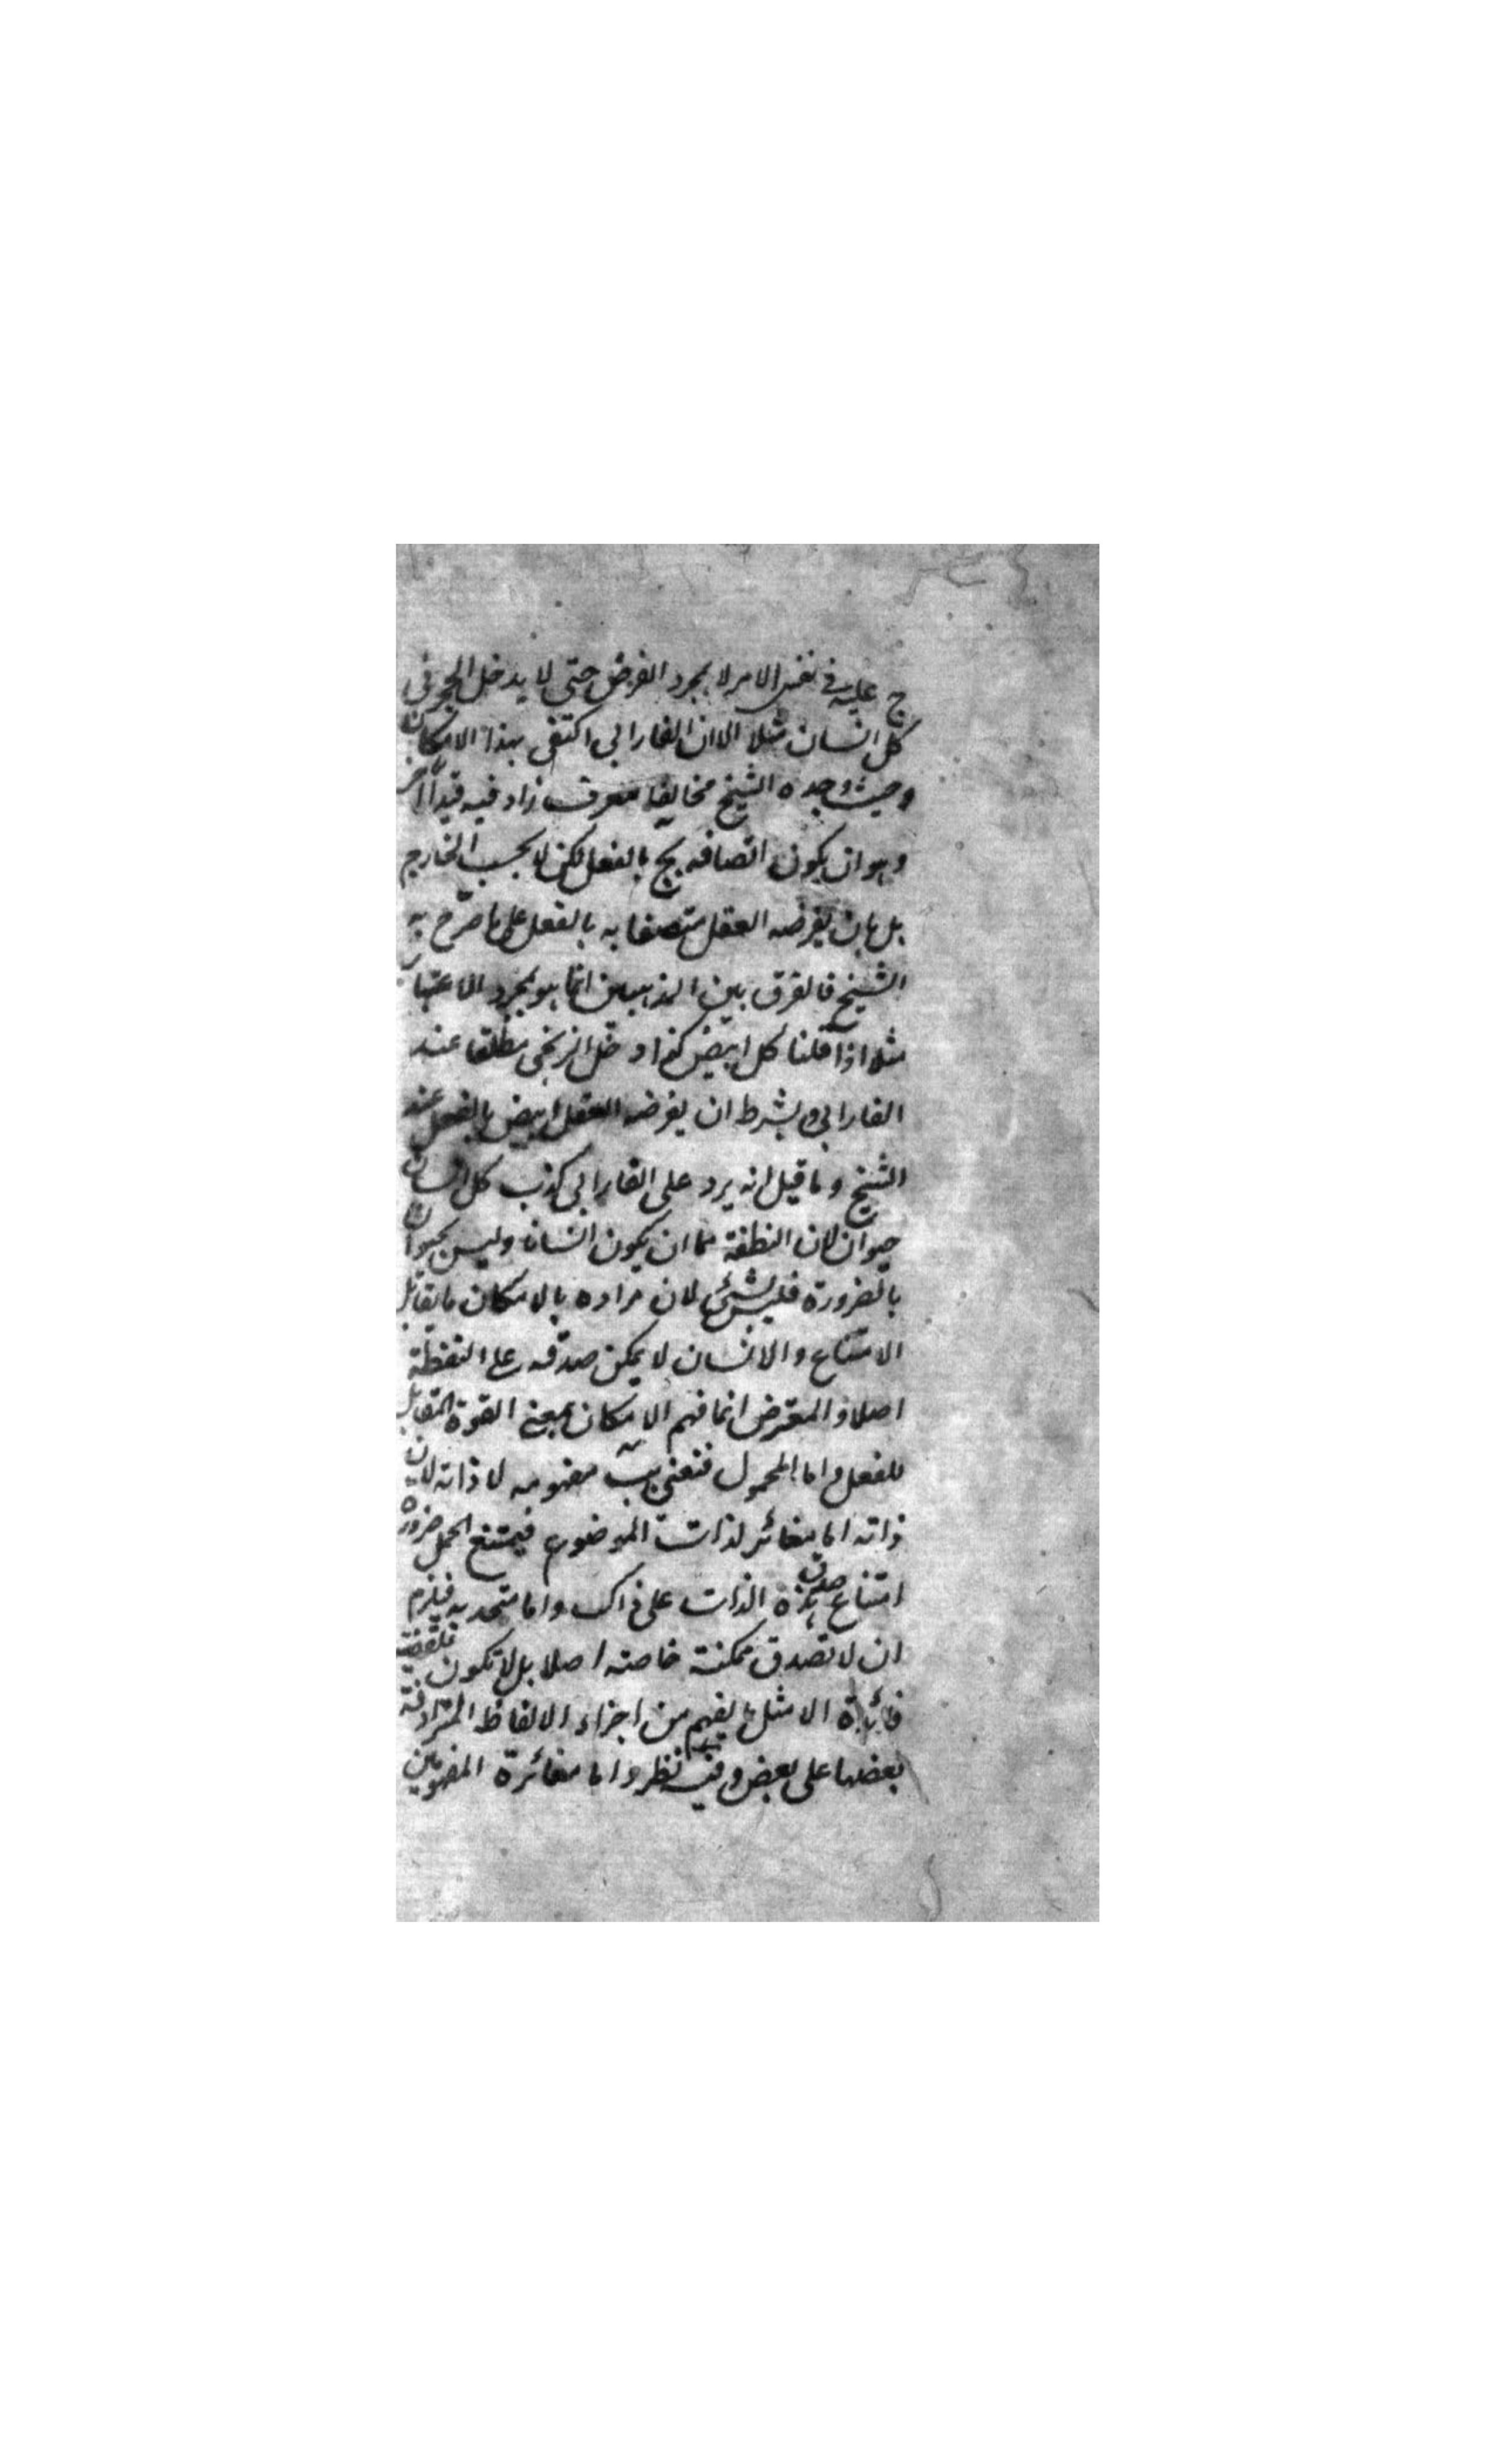 ج عليه في نفس الامر لا بمجرد الفرض حتى لا يدخل الحجر في
كل انسان مثلا الا ان الفارابي اكتفى بهذا الامكان
وحيث وجده الشيخ مخالفا للعرف زاد فيه قيدا آخر
وهو ان يكون اتصافه بج بالفعل لكن لا بحسب الخارج
بل بان يفرضه العقل متصفا به بالفعل على ما صرّح به
الشيخ فالفرق بين المذهبين انما هو بمجرد الاعتبار
مثلا اذا قلنا كل ابيض كذا دخل الزنجي مطلقا عند
الفارابي وبشرط ان يفرضه العقل ابيض بالفعل عند
الشيخ وما قيل انه يرد على الفارابي كذب كل انسان
حيوان لان النطفة مما ان يكون انسانا وليس بحيوان
بالضرورة فليس بشئ لان مراده بالامكان ما يقابل
الامتناع والانسان لا يمكن صدقه على النفطة
اصلا والمعترض انما فهم الامكان بمعنى القوة المقابل
للفعل واما المحمول فنعني به مفهومه لا ذاته لان
ذاته اما مغائر لذات الموضوع فيمتنع الحمل ضرورة
امتناع صدق هذه الذات على ذاك واما متحد به فيلزم
ان لا تصدق ممكنة خاصة اصلا بل لا تكون للقضية
فائدة الا مثل ما يفهم من اجزاء الالفاظ المترادفة
بعضها على بعض وفيه نظر واما مغائرة المفهومين